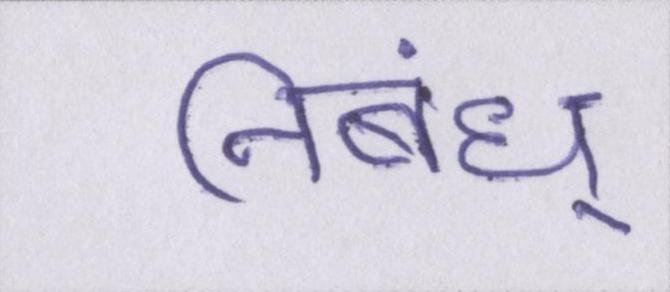 निबंध्